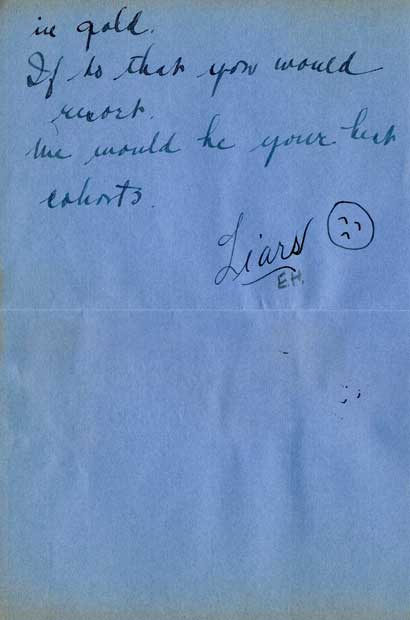 in gold.
If to that you would
resort.
We would be your best
cohorts.
Liars
E.H.